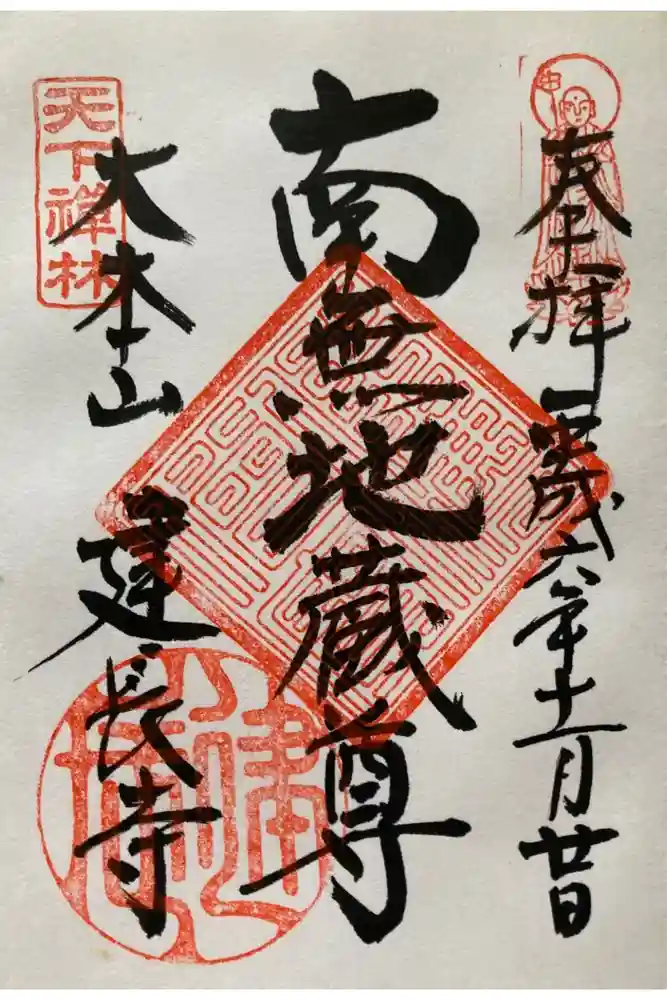 奉拝
六年十一月廿日
南無地蔵尊
大本山
建長寺
天下禅林